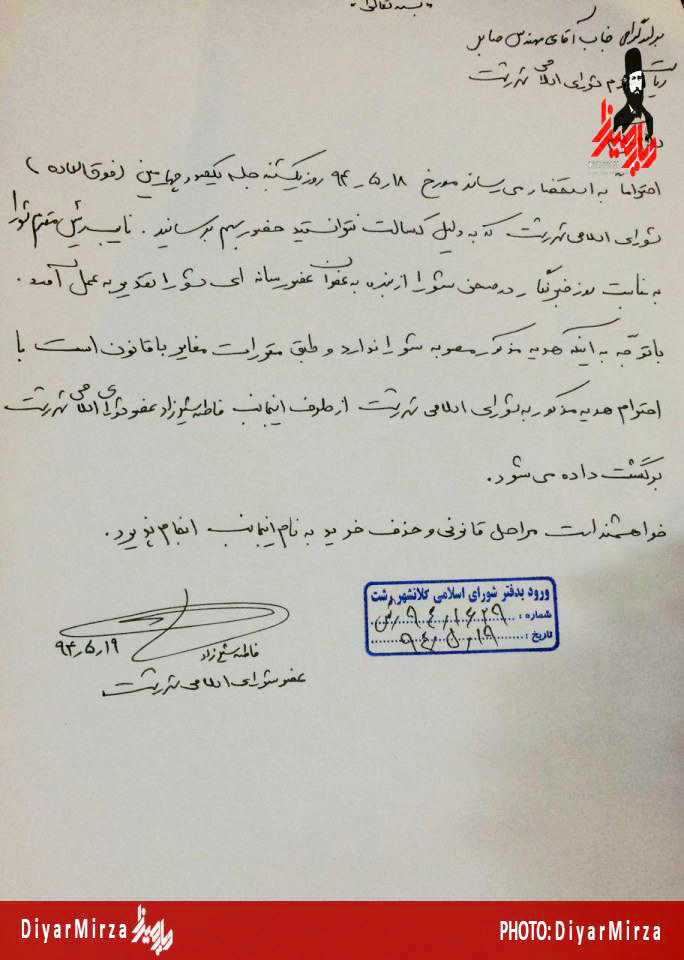 بسمه تعالی
برادر گرامی جناب آقای مهندس صابر
ریاست محترم شورای اسلامی شهر رشت
احتراماً به استحضار می رساند مورخ ۹۴٫۵٫۱۸ روز یکشنبه جلسه یکصد و چهلمین (فوق العاده)
شورای اسلامی شهر رشت که به دلیل کسالت نتوانستید حضور بهم برسانید . نایب رئیس محترم شورا
به مناسبت روز خبرنگار در صحن شورا از بنده به عنوان عضو رسانه ای شورا تقدیر به عمل آمد .
باتوجه به اینکه هدیه مذکور مصوبه شورا ندارد و طبق مقررات مغایر با قانون است با
احترام هدیه مذکور به شورای اسلامی شهر رشت از طرف اینجانب فاطمه شیرزاد عضو شورای اسلامی شهر رشت
برگشت داده می شود .
خواهشمند است مراحل قانونی و حذف خرید به نام اینجانب انجام پذیرد .
ورود بدفتر شورای اسلامی کلانشهر رشت
شماره : ۹۴٫۱۶۲۹٫ش
تاریخ : ۹۴٫۵٫۱۹
۹۴٫۵٫۱۹
فاطمه شیرزاد
عضو شورای اسلامی شهر رشت
دیارمیرزا
DiyarMirza دیارمیرزا
PHOTO: DiyarMirza